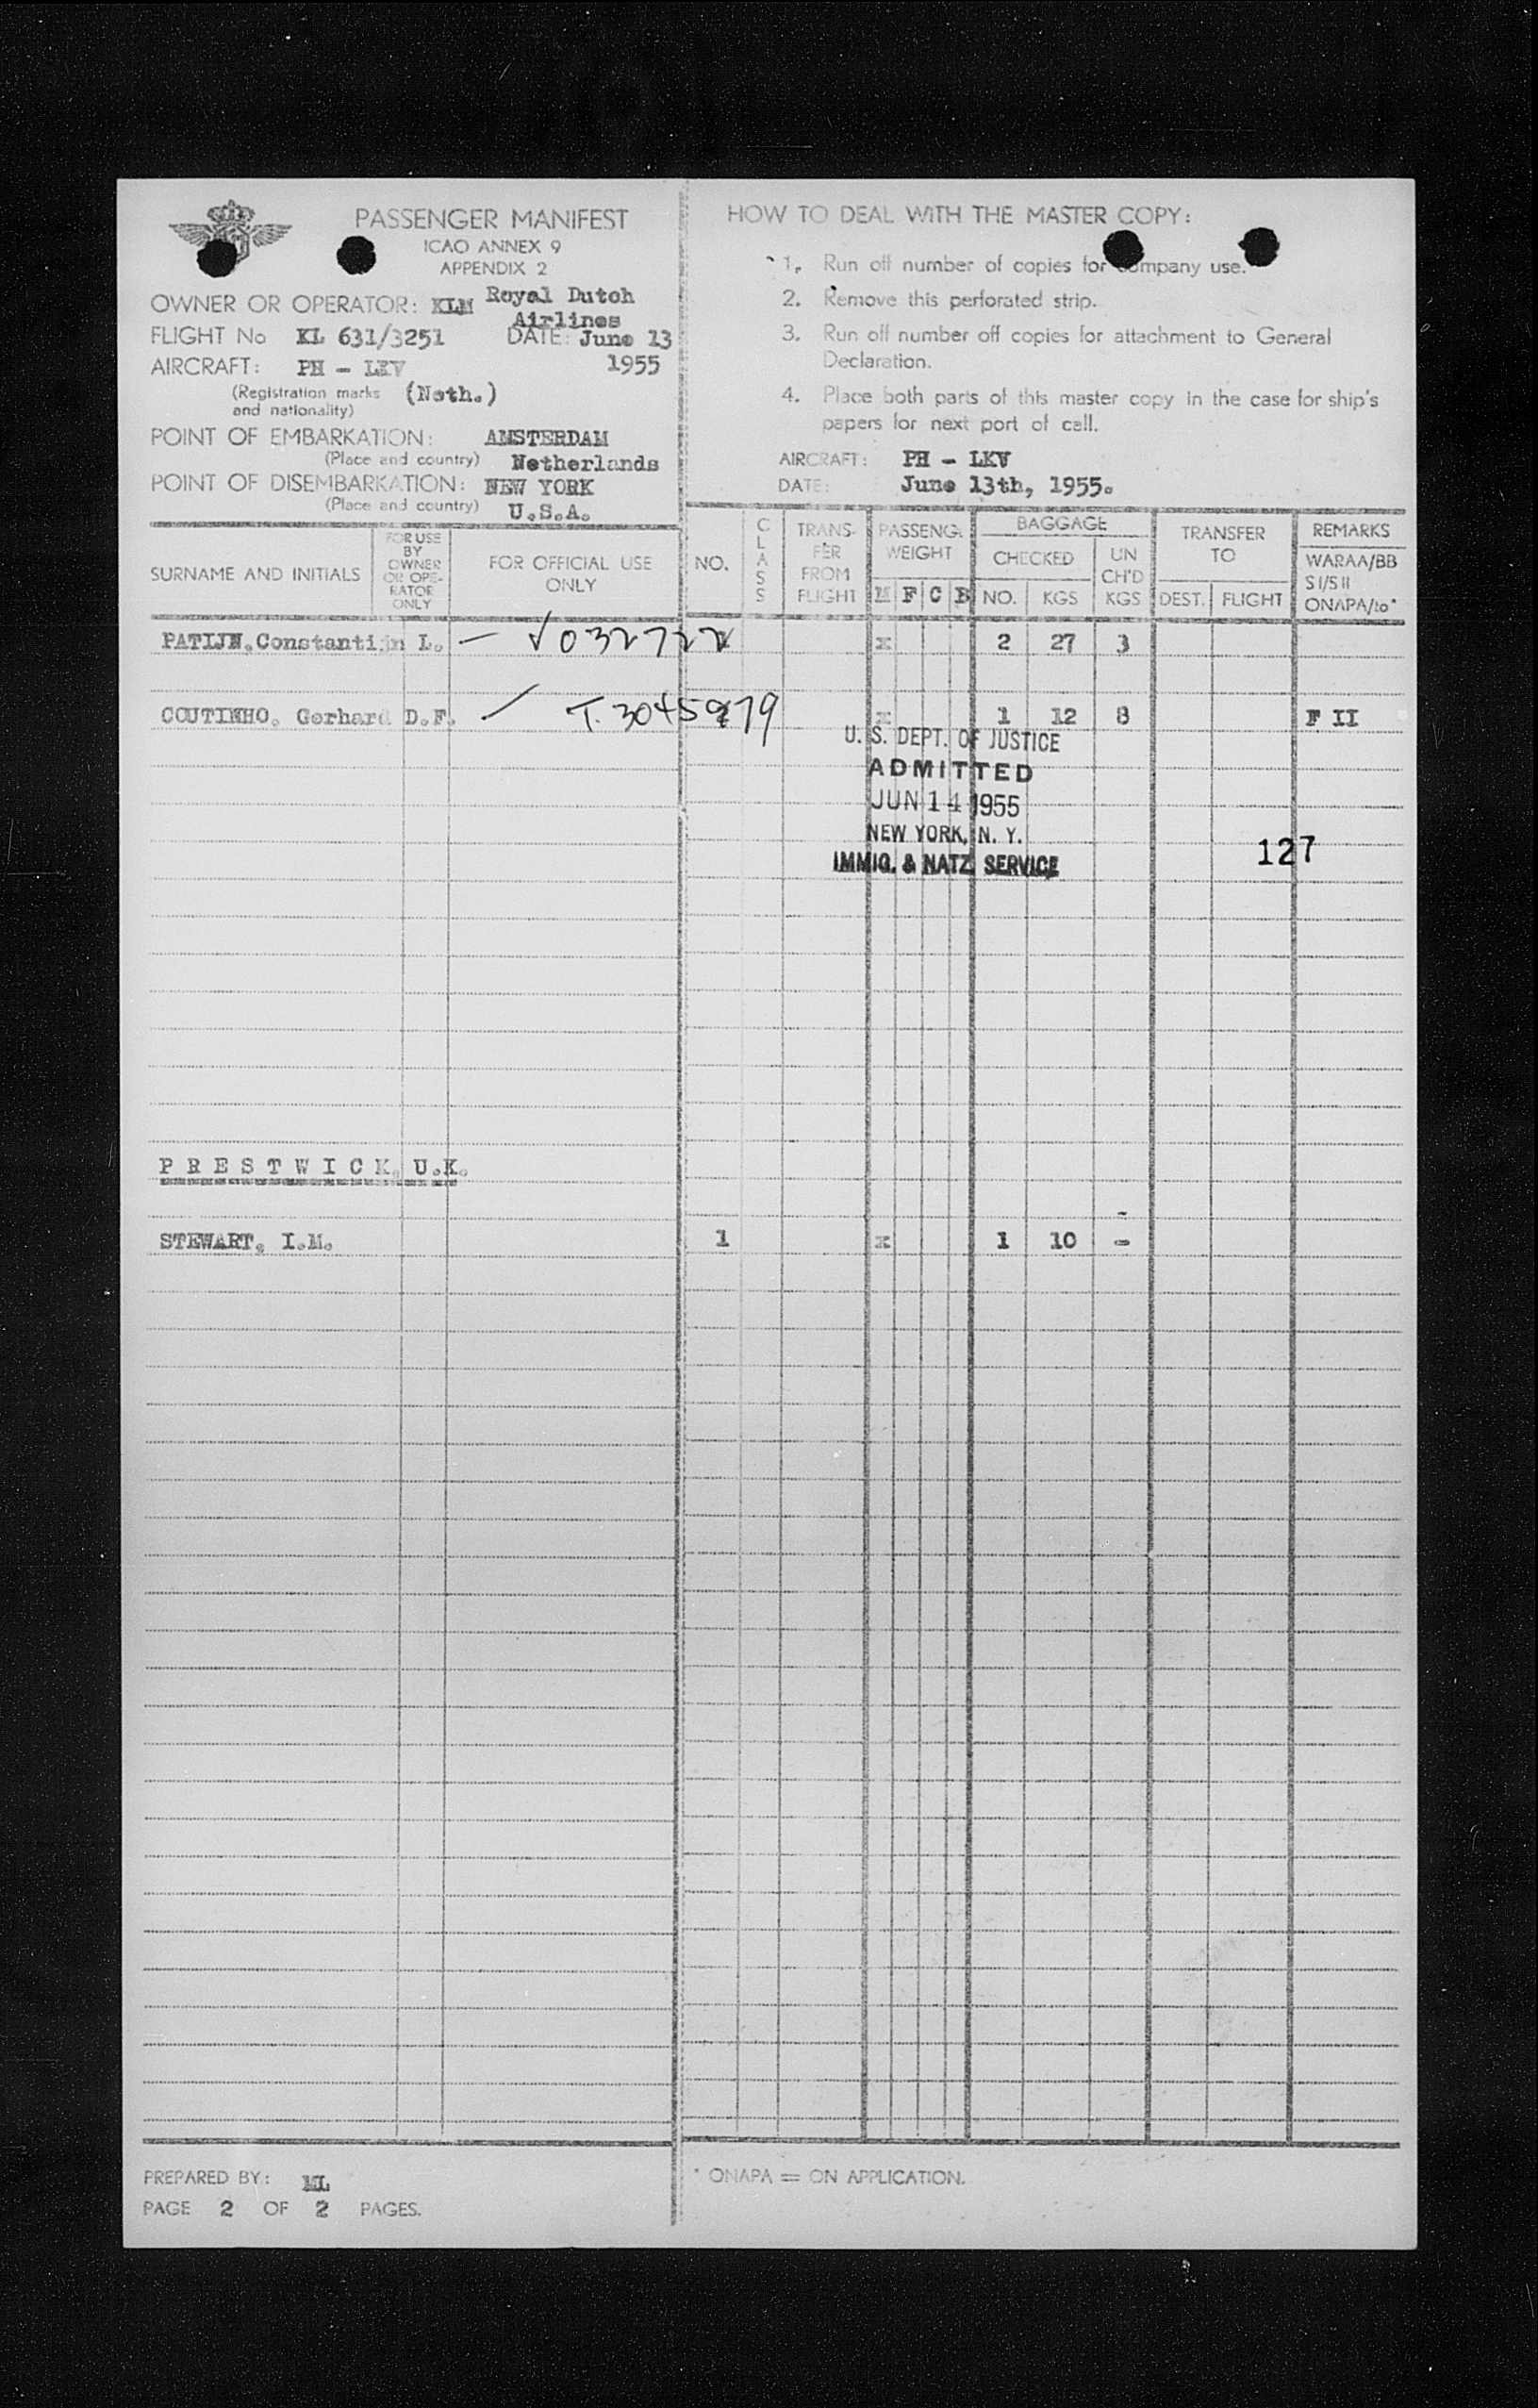 PASSENGER MANIFEST
ICAO ANNEX 9
APPENDIX 2
OWNER OR OPERATOR: KLM Royal Dutch
Airlines
FLIGHT No KL 631/3251 DATE: June 13
1955
AIRCRAFT: PH - LKV
(Registration marks and nationality) (Neth.)
POINT OF EMBARKATION: AMSTERDAM
(Place and country) Netherlands
POINT OF DISEMBARKATION: NEW YORK
(Place and country) U.S.A.
HOW TO DEAL WITH THE MASTER COPY:
1. Run off number of copies for company use.
2. Remove this perforated strip.
3. Run off number off copies for attachment to General
Declaration.
4. Place both parts of this master copy in the case for ship's
papers for next port of call.
AIRCRAFT: PH - LKV
DATE: June 13th, 1955.
SURNAME AND INITIALS
FOR USE
BY
OWNER
OR OPE-
RATOR
ONLY
FOR OFFICIAL USE
ONLY
NO.
CLASS
TRANS-
FER
FROM
FLIGHT
PASSENG.
WEIGHT
M F C B
BAGGAGE
CHECKED
NO. KGS
UN
CH'D
KGS
TRANSFER
TO
DEST. FLIGHT
REMARKS
WARAA/BB
S I/S II
ONAPA/to*
PATIJN, Constantijn L. — √032722 x 2 27 3
COUTINHO, Gerhard D.F. / T. 3045979 x 1 12 8 F II
U. S. DEPT. OF JUSTICE
ADMITTED
JUN 14 1955
NEW YORK, N. Y.
IMMIG. & NATZ. SERVICE
127
PRESTWICK, U.K.
STEWART, I.M. 1 x 1 10 -
PREPARED BY: ML
PAGE 2 OF 2 PAGES.
* ONAPA = ON APPLICATION.